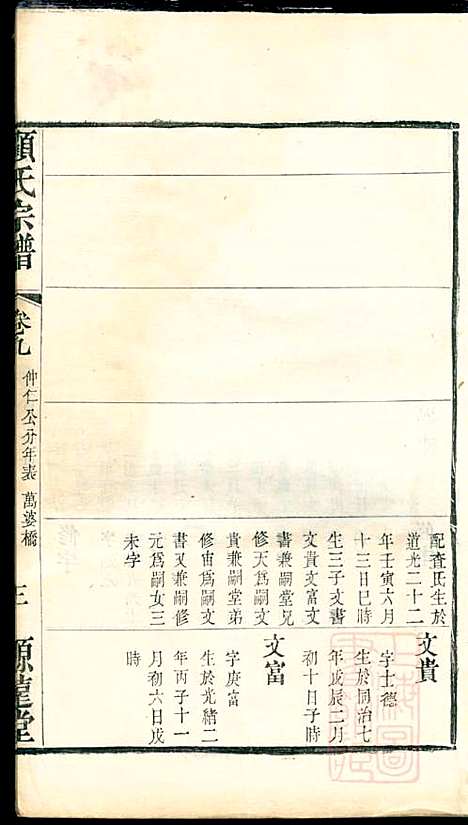 配査氏生於
道光二十二
年壬寅六月
十三日巳時
生三子文書
文貴文富文
書兼嗣堂兄
修天爲嗣文
貴兼嗣堂弟
修宙爲嗣文
書又兼嗣修
元爲嗣女三
未字
文貴
字士德
生於同治七
年戊辰二月
初十日子時
文富
字庚富
生於光緒二
年丙子十一
月初六日戌
時
顧氏宗譜
卷九
仲仁公分年表 萬婆橋
三
源蘧堂